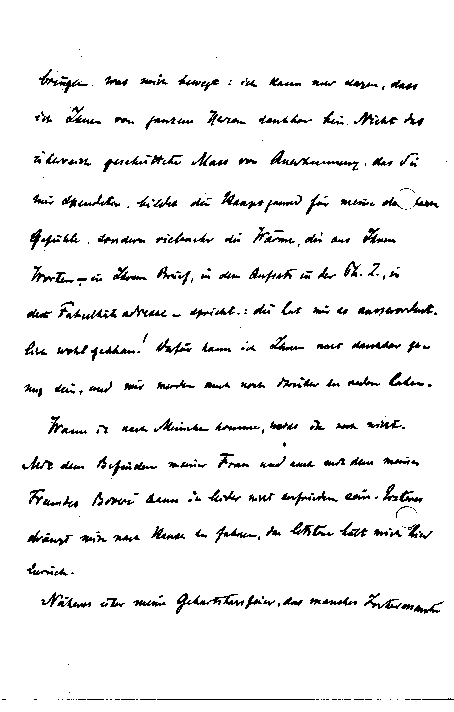 bringen, was mich bewegt: ich kann nur sagen, dass
ich Ihnen von ganzem Herzen dankbar bin. Nicht das
überreich geschüttete Mass von Anerkennung, das Sie
mir spendeten, bildet den Hauptgrund für meine
Gefühle, sondern vielmehr die Wärme, die aus Ihren
Worten – in Ihrem Brief, in dem Aufsatz in der Ph. Z., in
der Fakultätsadresse – spricht: die hat mir so ausserordent-
lich wohl gethan! Dafür kann ich Ihnen nicht dankbar ge-
nug sein, und wir werden auch noch darüber zu reden haben.
Wann ich nach München komme, weiss ich noch nicht.
Mit dem Befinden meiner Frau und auch mit dem meines
Freundes Boveri kann ich leider nicht zufrieden sein. Ersteres
drängt mich nach Hause zu fahren, das letztere hält mich hier
zurück.
Näheres über meine Geburtstagsfeier, das manches